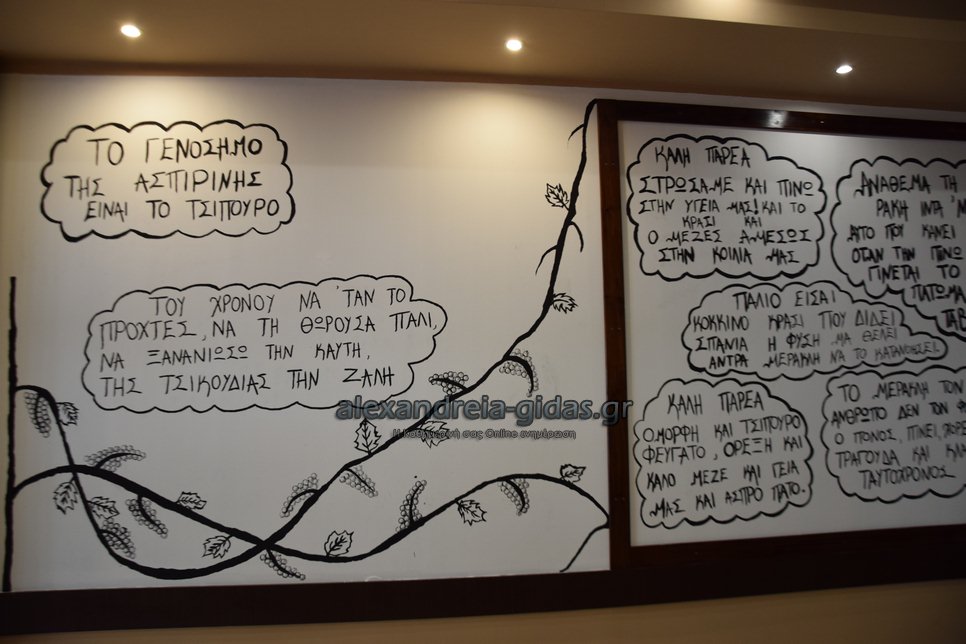 ΤΟ ΓΕΝΟΣΗΜΟ
ΤΗΣ ΑΣΠΙΡΙΝΗΣ
ΕΙΝΑΙ ΤΟ ΤΣΙΠΟΥΡΟ
ΤΟΥ ΧΡΟΝΟΥ ΝΑ 'ΤΑΝ ΤΟ
ΠΡΟΧΤΕΣ, ΝΑ ΤΗ ΘΩΡΟΥΣΑ ΠΑΛΙ,
ΝΑ ΞΑΝΑΝΙΩΣΩ ΤΗΝ ΚΑΥΤΗ,
ΤΗΣ ΤΣΙΚΟΥΔΙΑΣ ΤΗΝ ΖΑΛΗ
ΚΑΛΗ ΠΑΡΕΑ
ΣΤΡΩΣΑΜΕ ΚΑΙ ΠΙΝΩ
ΣΤΗΝ ΥΓΕΙΑ ΜΑΣ! ΚΑΙ ΤΟ
ΚΡΑΣΙ ΚΑΙ
Ο ΜΕΖΕΣ ΑΜΕΣΩΣ
ΣΤΗΝ ΚΟΙΛΙΑ ΜΑΣ
ΑΝΑΘΕΜΑ ΤΗ
ΡΑΚΗ ΙΝΤΑ 'Ν
ΑΠΟ ΠΟΥ ΚΑΝΕΙ
ΟΤΑΝ ΤΗΝ ΠΙΝΩ
ΓΙΝΕΤΑΙ ΤΟ
ΠΑΤΩΜΑ
ΤΑΒ
ΠΑΛΙΟ ΕΙΣΑΙ
ΚΟΚΚΙΝΟ ΚΡΑΣΙ ΠΟΥ ΔΙΔΕΙ
ΣΠΑΝΙΑ Η ΦΥΣΗ ΜΑ ΘΕΛΕΙ
ΑΝΤΡΑ ΜΕΡΑΚΛΗ ΝΑ ΤΟ ΚΑΤΑΝΟΗΣΕΙ.
ΚΑΛΗ ΠΑΡΕΑ
ΟΜΟΡΦΗ ΚΑΙ ΤΣΙΠΟΥΡΟ
ΦΕΥΓΑΤΟ, ΟΡΕΞΗ ΚΑΙ
ΚΑΛΟ ΜΕΖΕ ΚΑΙ ΓΕΙΑ
ΜΑΣ ΚΑΙ ΑΣΠΡΟ ΠΑΤΟ.
ΤΟ ΜΕΡΑΚΛΗ ΤΟΝ
ΑΝΘΡΩΠΟ ΔΕΝ ΤΟΝ
Ο ΠΟΝΟΣ, ΠΙΝΕΙ, ΧΟΡΕ
ΤΡΑΓΟΥΔΑ ΚΑΙ ΚΛΑ
ΤΑΥΤΟΧΡΟΝΟΣ
alexandreia-gidas.gr
Η καθημερινή σας Online ενημέρωση